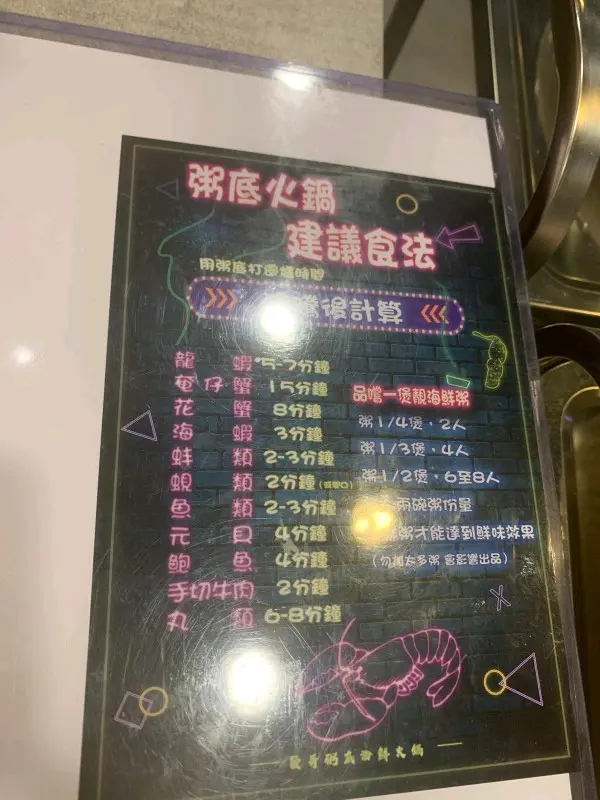 粥底火鍋
建議食法
用粥底打邊爐時間
後計算
龍蝦 5-7分鐘
奄仔蟹 15分鐘
花蟹 8分鐘
海蝦 3分鐘
蚌類 2-3分鐘
蜆類 2分鐘
魚類 2-3分鐘
元貝 4分鐘
鮑魚 4分鐘
手切牛肉 2分鐘
丸類 6-8分鐘
品嚐一煲靚海鮮粥
粥1/4煲，2人
粥1/3煲，4人
粥1/2煲，6至8人
兩碗粥份量
粥才能達到鮮味效果
(勿加太多粥 會影響出品)
粥底海鮮火鍋